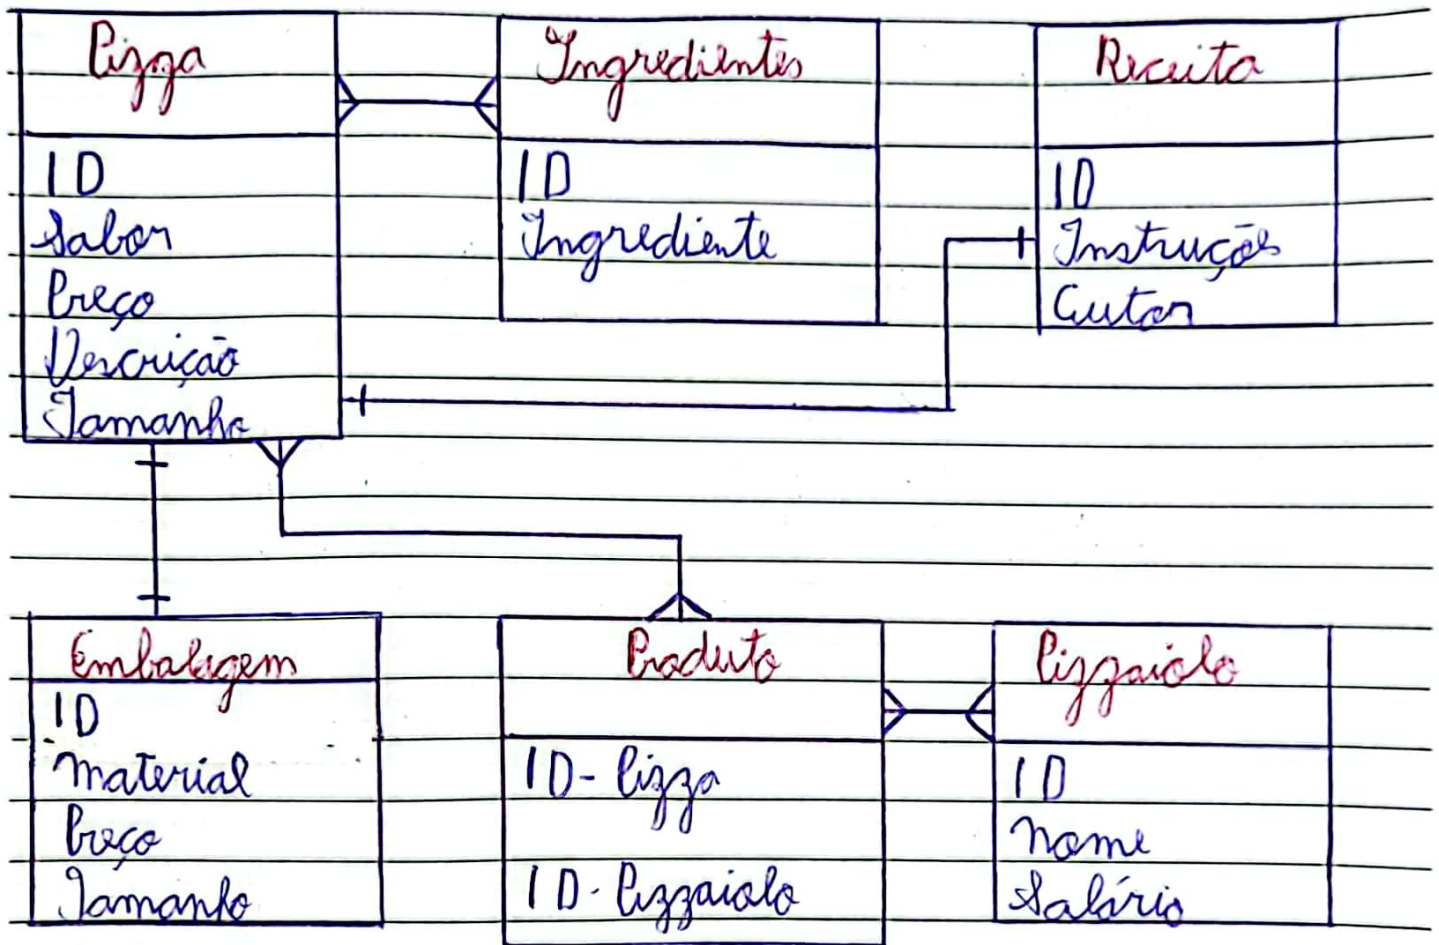 Pizza
ID
Sabor
Preço
Descrição
Tamanho
Ingredientes
ID
Ingrediente
Receita
ID
Instruções
Autor
Embalagem
ID
Material
Preço
Tamanho
Produto
ID-Pizza
ID-Pizzaiolo
Pizzaiolo
ID
Nome
Salário